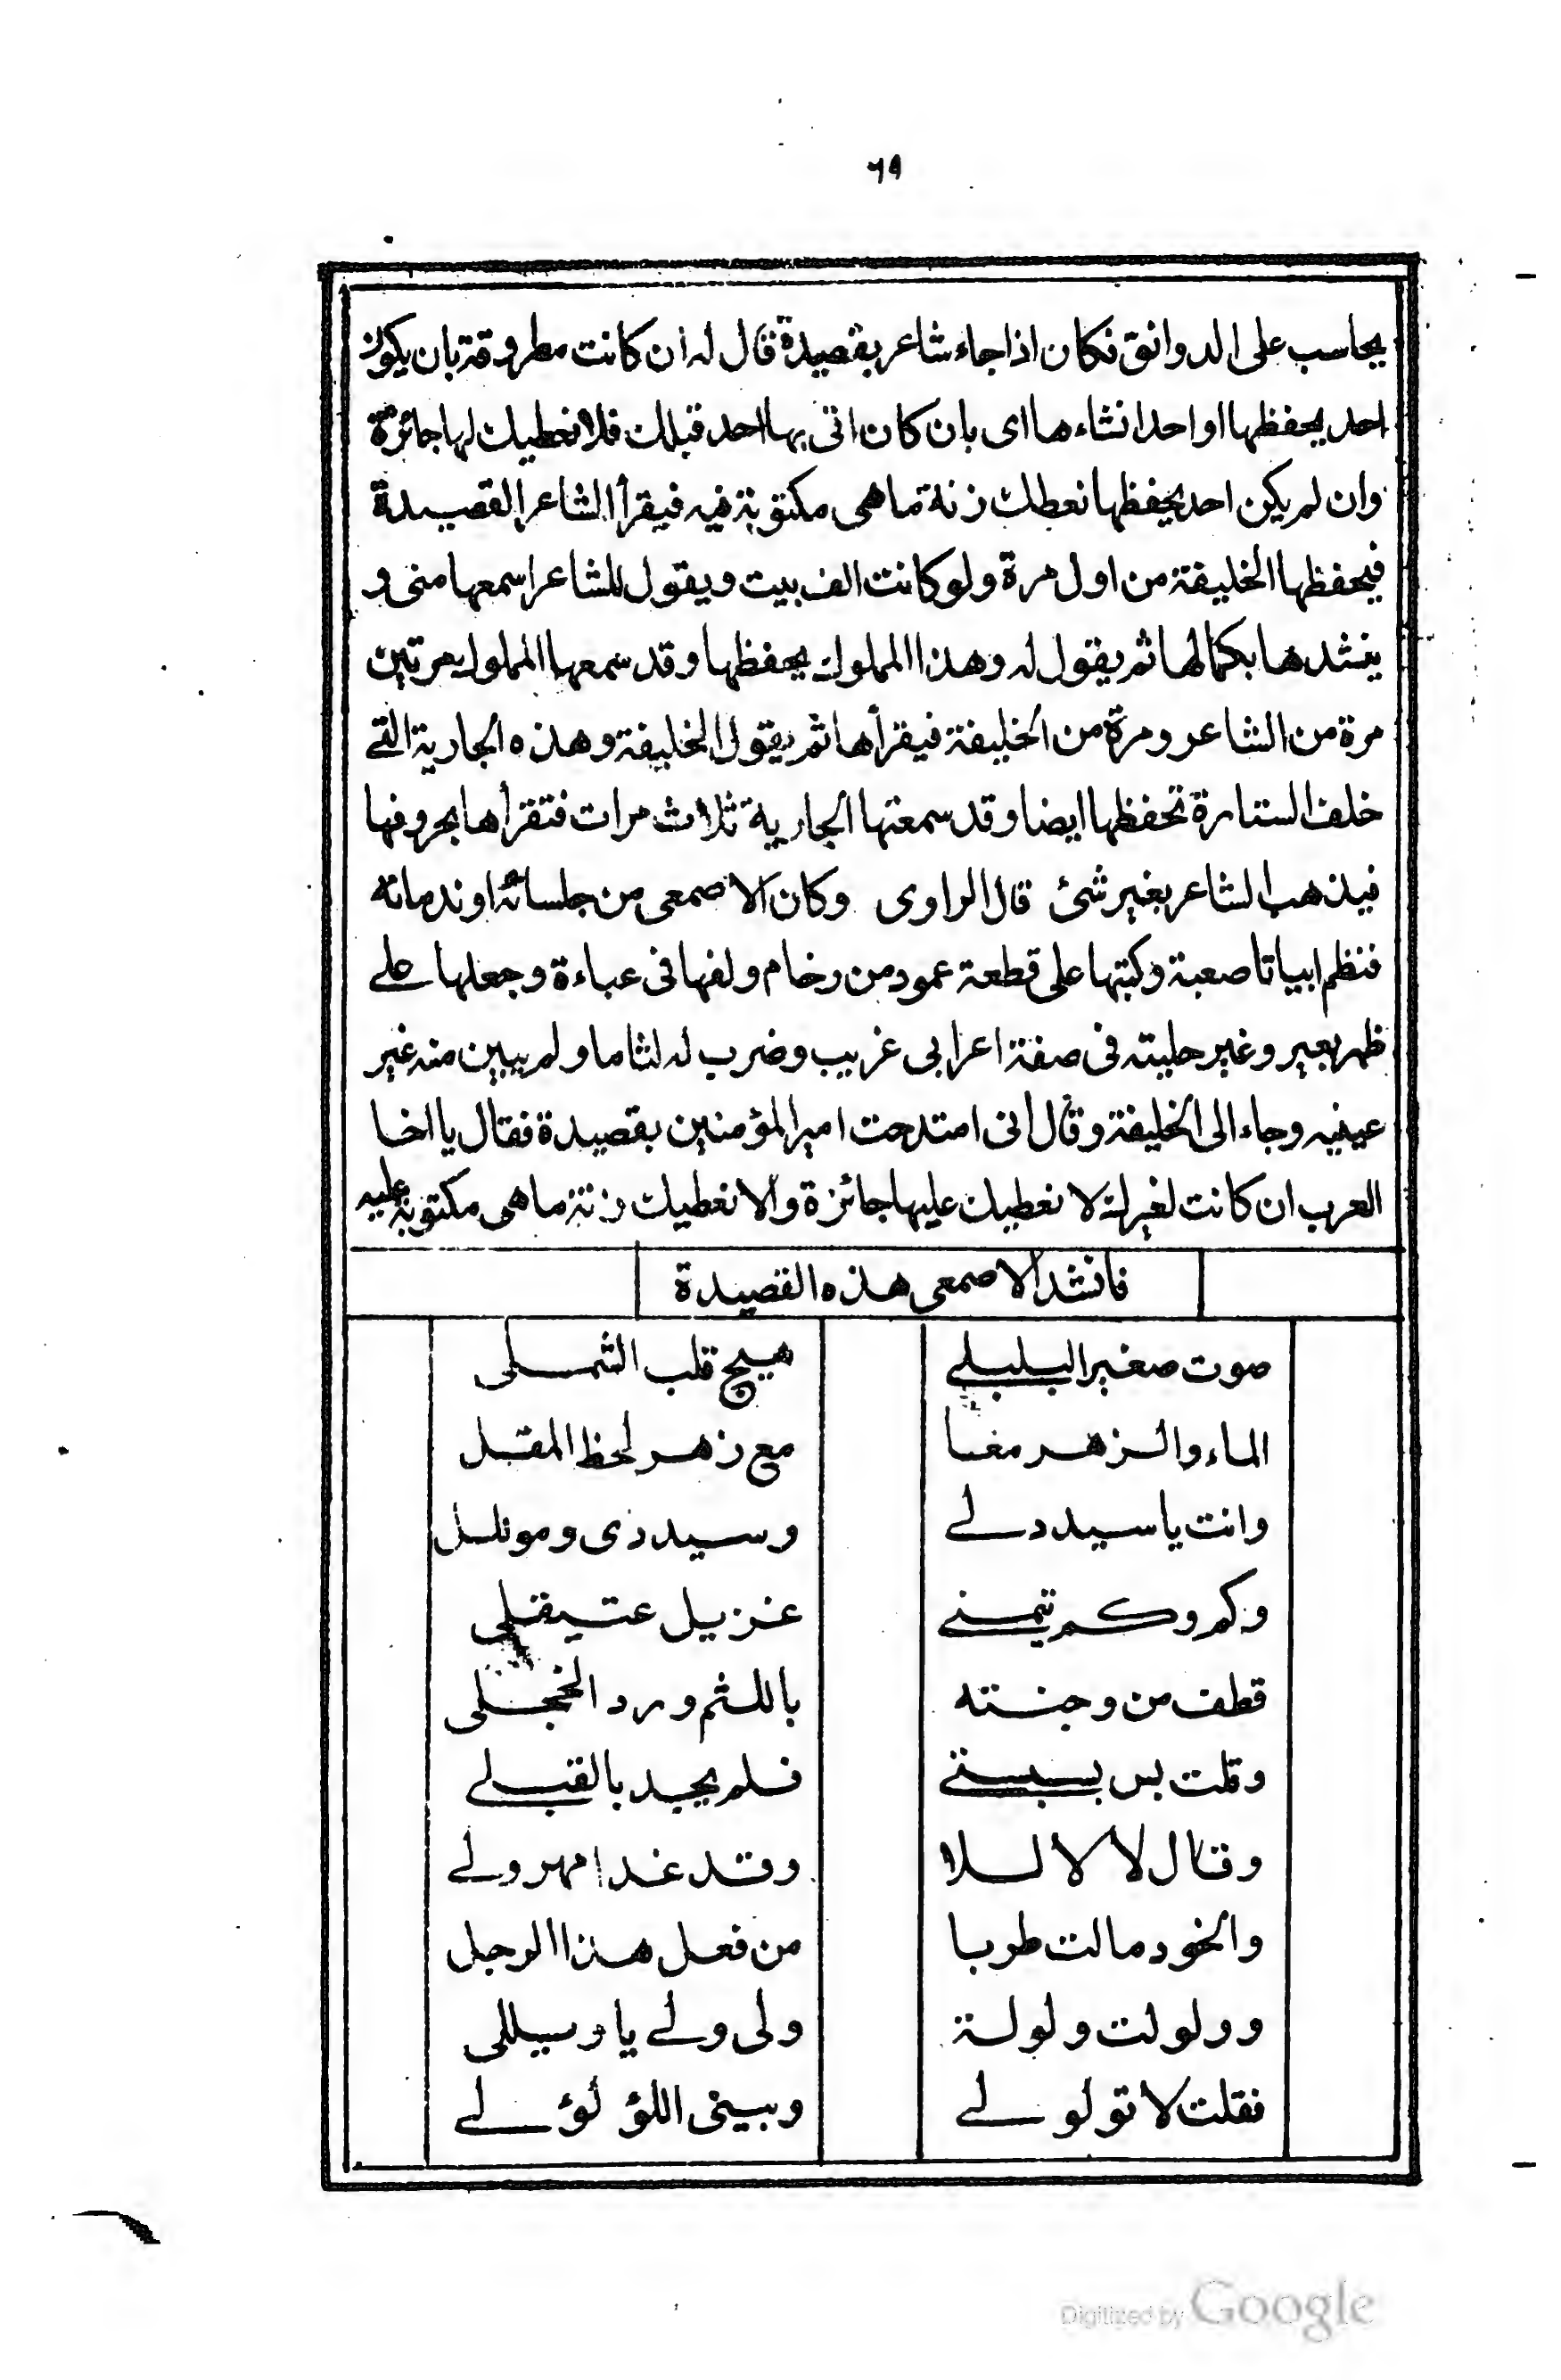 ٦٩
يحاسب على الدوانق فكان اذا جاء شاعر بقصيدة قال له ان كانت مطروقة بان يكون
احد يحفظها او احد انشاءها اى بان كان اتى بها احد قبلك فلا نعطيك لها جائزة
وان لم يكن احد يحفظها نعطك زنة ما هى مكتوبة فيه فيقرأ الشاعر القصيدة
فيحفظها الخليفة من اول مرة ولو كانت الف بيت ويقول للشاعر اسمعها منى و
ينشدها بكمالها ثم يقول له وهذا المملوك يحفظها وقد سمعها المملوك مرتين
مرة من الشاعر ومرة من الخليفة فيقرأها ثم يقول الخليفة وهذه الجارية التى
خلف الستارة تحفظها ايضا وقد سمعتها الجارية ثلاث مرات فتقرأها بحروفها
فيذهب الشاعر بغير شئ قال الراوى وكان الاصمعى من جلسائه او ندمائه
فنظم ابياتا صعبة وكتبها على قطعة عمود من رخام ولفها فى عباءة وجعلها على
ظهر بعير وغير حليته فى صفة اعرابى غريب وضرب له لثاما ولم يبين منه غير
عينيه وجاء الى الخليفة وقال انى امتدحت امير المؤمنين بقصيدة فقال يا اخا
العرب ان كانت لغيرك لا نعطيك عليها جائزة والا نعطيك زنة ما هى مكتوبة عليه
فانشد الاصمعى هذه القصيدة
صوت صفير البلبلى هيج قلب الثملى
الماء والزهر معا مع زهر لحظ المقل
وانت يا سيد دلى وسيددى وموئلل
وكم وكم تيمنى غزيل عتيقلى
قطف من وجنته باللثم ورد الخجلى
وقلت بس بسبستى فلم يجيد بالقبلى
وقال لا لا للا وقد غدا مهرولى
والخود مالت طربا من فعل هذا الرجل
وولولت ولولة ولى ولى يا ويللى
فقلت لا تولولى وبينى اللؤلؤلى
Digitized by Google